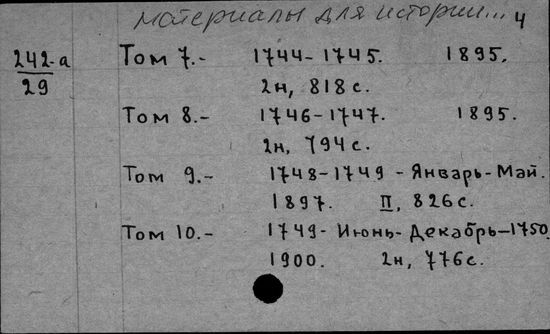 материалы для истории... 4
242-а
29
Том 7.- 1744-1745. 1895.
2н, 818 с.
Том 8.- 1746-1747. 1895.
2н, 794 с.
Том 9.- 1748-1749 - Январь-Май.
1897. II, 826 с.
Том 10.- 1749- Июнь-Декабрь-1750
1900. 2н, 776 с.